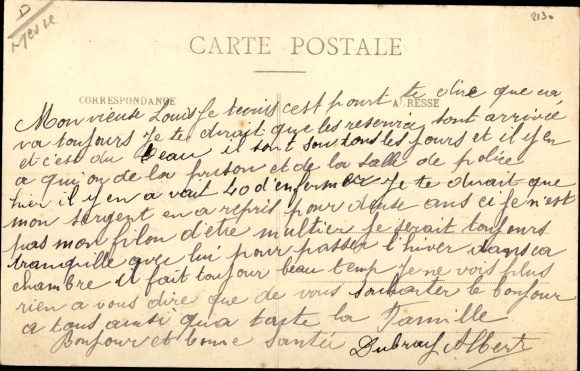 D
Meuse
213
CARTE POSTALE
CORRESPONDANCE
ADRESSE
Mon vieux Louis Je tecris c'est pourt te dire que ca
va toujours Je te dirait que les reservis sont arrivée
et c'est du beau il sont sou tous les jours et il y en
a qui on de la prison et de la salle de police
hier il y en a vait 40 d'enfermer Je te dirait que
mon sergent en a repris pour deuse ans ci je n'est
pas mon filon d'être multier je serait toujours
tranquille avec lui pour passer l'hiver dans ca
chambre il fait toujour beau temp Je ne vois plus
rien a vous dire que de vous souhaiter le bonjour
a tous ainsi qua toute la Famille
Bonjour et bonne santée
Dubray Albert